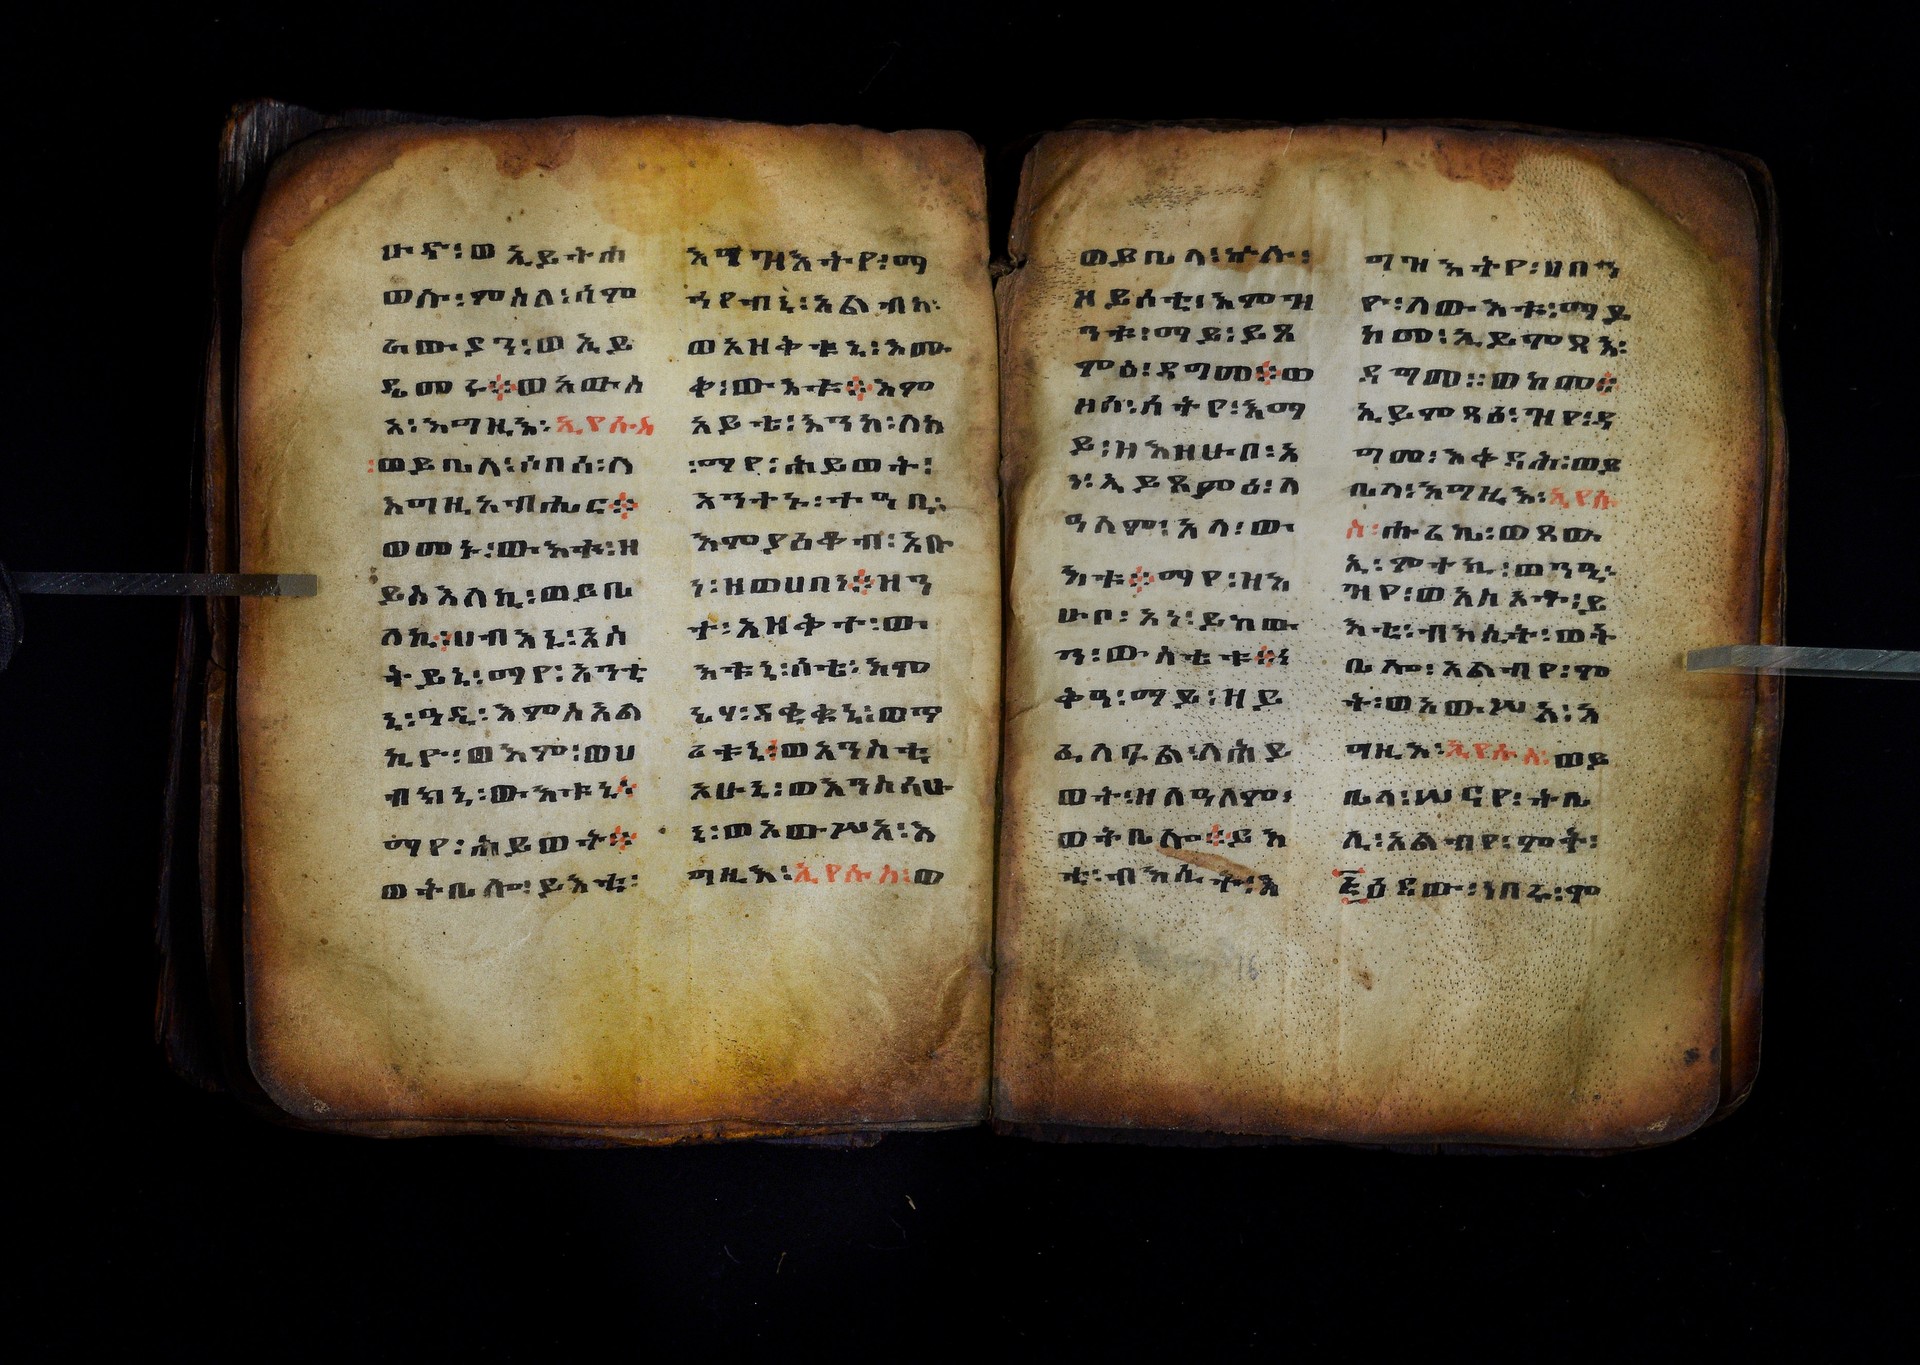 ሁድ፡ወኢይትሐ
ወሱ፡ምስለ፡ሳም
ራውያን፡ወኢይ
ዴመሩ፨ወአውሰ
አ፡እግዚእ፡ኢየሱስ
፡ወይቤላ፡ሶበሰ፡
እግዚአብሔር፨
ወመኑ፡ውእቱ፡ዘ
ይስእለኪ፡ወይቤ
ለኪ፡ሀብእኒ፡እስ
ትይኒ፡ማየ፡አንቲ
ኒ፡ዓዲ፡እምሰአል
ኪዮ፡ወእም፡ወሀ
ብኪኒ፡ውእቱኒ፨
ማየ፡ሕይወት፨
ወትቤሎ፡ይእቲ፡
እግዝእትየ፡ማ
ኅየብኒ፡አልብከ፡
ወአዘቅቱኒ፡እሙ
ቅ፡ውእቱ፨እም
አይቴ፡እንከ፡ብከ
፡ማየ፡ሕይወት፡
አንተኑ፡ተዓቢ፡
እምያዕቆብ፡አቡ
ነ፡ዘወሀበነ፨ዘን
ተ፡አዘቅተ፡ው
እቱኒ፡ሰቲ፡እም
ኔሃ፡ደቂቁኒ፡ወማ
ራቱኒ፡ወእንስቲ
አሁኒ፡ወእንስሳሁ
ኒ፡ወአውሥአ፡እ
ግዚእ፡ኢየሱስ፡ወ
ወይቤላ፡ኵሉ፡
ዘይሰቲ፡እምዝ
ንቱ፡ማይ፡ይጸ
ምዕ፡ዳግመ፨ወ
ዘሰ፡ሰትየ፡እማ
ይ፡ዘእዘሁበ፡አ
ነ፡ኢይጸምዕ፡ለ
ዓለም፡አላ፡ው
እቱ፨ማየ፡ዘእ
ሁቦ፡አነ፡ይከው
ን፡ውስቴቱ፨ነ
ቅዓ፡ማይ፡ዘይ
ፈለፍል፡ለሕይ
ወት፡ዘለዓለም፡
ወትቤሎ፨ይእ
ቲ፡ብእሲት፡እ
ግዝእትየ፡ሀበኒ
ዮ፡ለውእቱ፡ማይ
ከመ፡ኢይምጻእ፡
ዳግመ፡፡ወከመ፨
ኢይምጻዕ፡ዝየ፡ዳ
ግመ፡እቀዳሕ፡ወይ
ቤላ፡እግዚእ፡ኢየሱ
ስ፡ሑሪኬ፡ወጸው
ኢ፡ምተኪ፡ወንዒ፡
ዝየ፡ይ
እቲ፡ብእሲት፡ወት
ቤሎ፡አልብየ፡ም
ት፡ወአውሥአ፡እ
ግዚእ፡ኢየሱስ፡ወይ
ቤላ፡ሠናየ፡ትቤ
ሊ፡አልብየ፡ምት፡
፭ዕደው፡ነበሩ፡ም
16